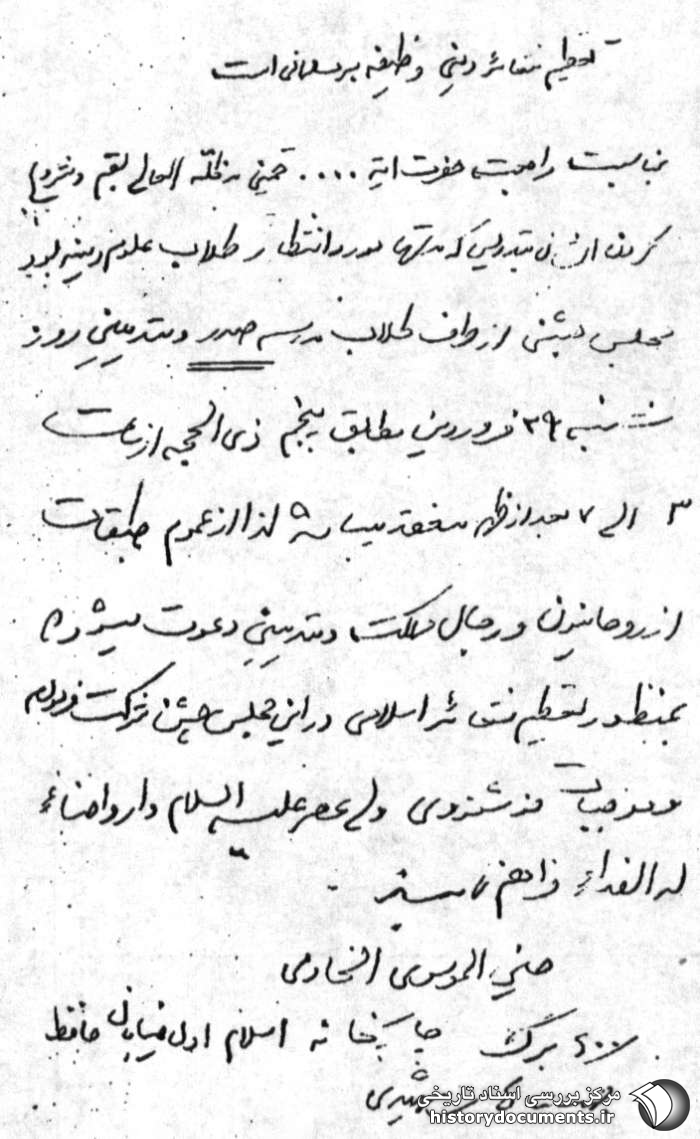 تعظیم شعائر دینی وظیفه هر مسلمانی است
بمناسبت مراجعت حضرت آیة .... خمینی مدظله العالی بقم و شروع
کردن ایشان بتدریس که مدتها مورد انتظار طلاب علوم دینیه بود
مجلس جشنی از طرف طلاب مدرسه صدر و متدینین روز
شنبه ۲۹ فروردین مطابق پنجم ذی الحجه از ساعت
۳ الی ۷ بعد از ظهر منعقد میباشد لذا از عموم طبقات
از روحانیون و رجال مملکت و متدینین دعوت میشود
بمنظور تعظیم شعائر اسلامی در این مجلس جشن شرکت فرموده
و موجبات خوشنودی ولی عصر علیه السلام و ارواحنا
له الفداء فراهم نمایند
الموسوی الخادمی
۶۰۰ برگ چاپخانه اسلام اول خیابان حافظ
مرکز بررسی اسناد تاریخی
historydocuments.ir